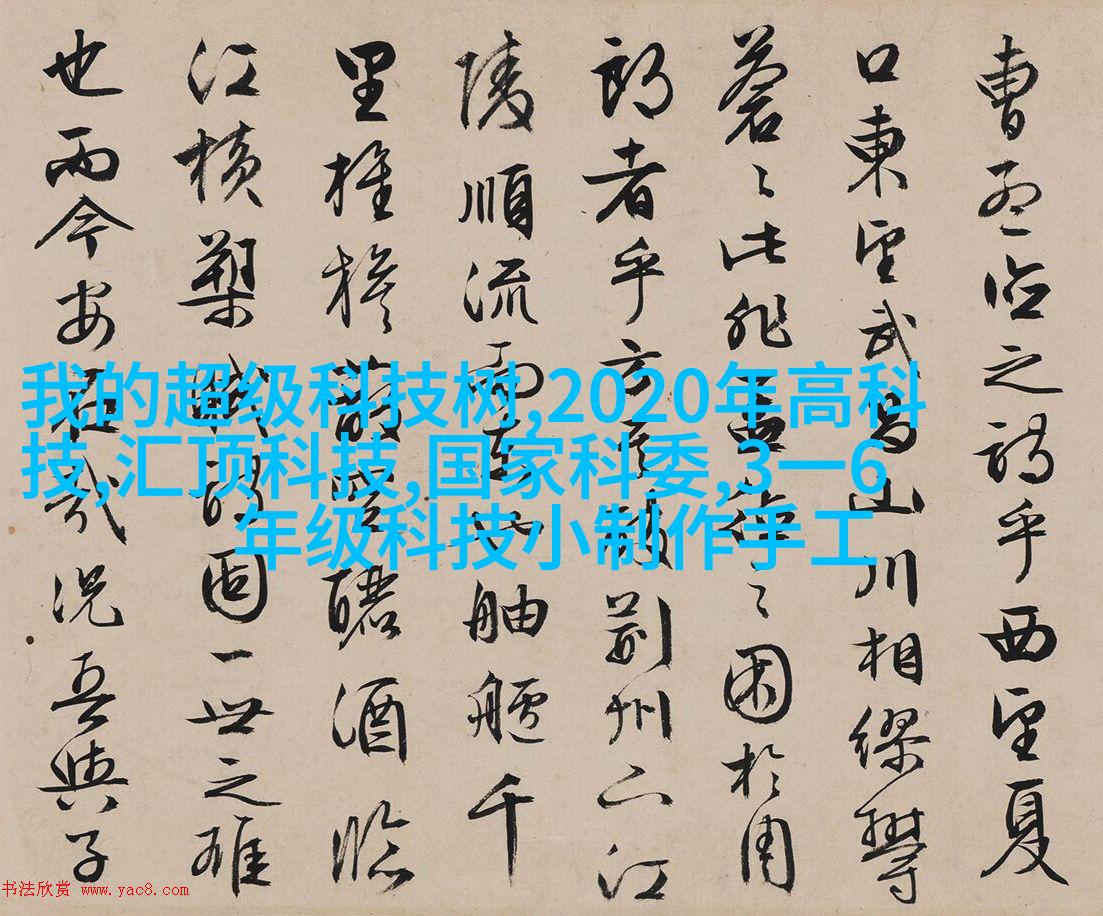 曹孟德之詩乎西望夏
口東望武昌山川相繆鬱
蒼〻此非孟德之困於周
郎者乎方其破荊州下江
陵順流而東也舳艫千
里旌旗蔽空釃酒臨
江橫槊賦詩固一世之雄
也而今安在哉況吾與子
我的超级科技树,2020年高科
技,汇顶科技,国家科委,3一6
年级科技小制作手工
书法欣赏 www.yac8.com